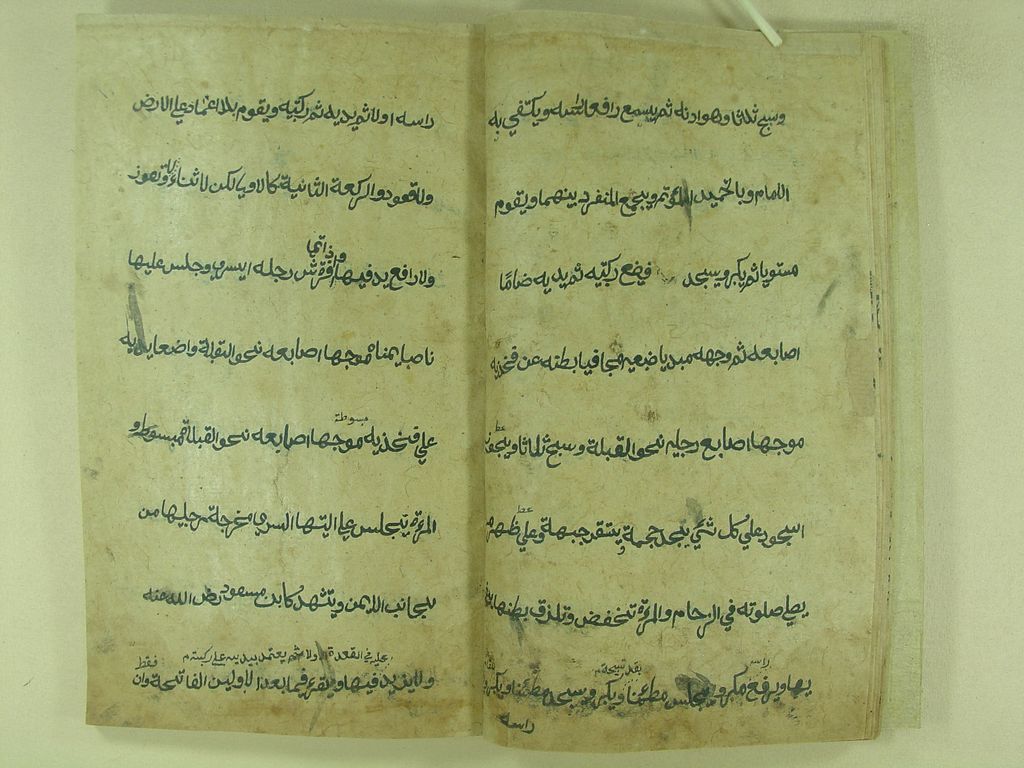 وسبح ثلثا وهو ادناه ثم يسمع رافعا راسه ويكتفي به
الامام وبالتحميد المؤتم ويجمع المنفرد بينهما ويقوم
مستويا ثم يكبر ويسجد فيضع ركبتيه ثم يديه ضاما
اصابعه ثم وجهه مبديا ضبعيه مجافيا بطنه عن فخذيه
موجها اصابع رجليه نحو القبلة وسبح ثلاثا ويجوز
السجود على كل شئ يجد حجمه ويستقر جبهة وعلى ظهر من
يصلي صلوته في الزحام والمرءة تنخفض وتلزق بطنها
راسه
بقدر تسبيحة
بها ويرفع مكبرا ويجلس مطمئنا ويكبر وسجد مطمئنا ويكبر
راسه
راسه اولا ثم يديه ثم ركبتيه ويقوم بلا اعتماد على الارض
ولا قعود والركعة الثانية كالاولى لكن لا ثناء ولا تعوذ
واذا تمها
ولا رافع يد فيها افترش رجله اليسرى وجلس عليها
ناصبا يمناه موجها اصابعه نحو القبلة واضعا يديه
مبسوطة
على فخذيه موجها اصابعه نحو القبلة مبسوطة و
المرءة تجلس على اليتها اليسرى مخرجة رجليها من
الجانب الايمن ويتشهد كابن مسعود رضي الله عنه
على في القعدة الاولا ثم يعتمد بيديه على ركبته فقط
ولا يزيد فيها ويقرء فيما بعد الاوليين الفاتحة وان